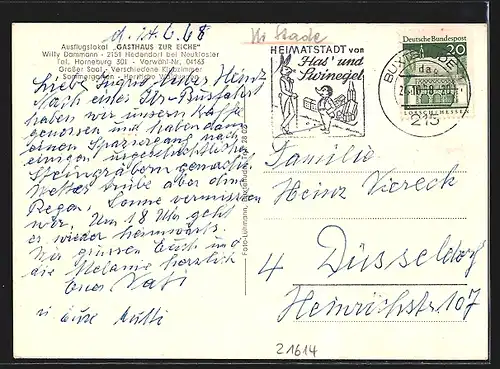 Kr Stade
Ausflugslokal „GASTHAUS ZUR EICHE"
Willy Dammann - 2151 Hedendorf bei Neukloster
Tel. Horneburg 301 - Vorwahl-Nr. 04163
Großer Saal - Verschiedene Klubzimmer
Sommergarten -
Liebe Sigrid, lieber Heinz
Nach einer Busfahrt
haben wir unsern Kaffee
genossen und haben dann
einen Spaziergang nach
einigen urgeschichtlichen
Steingräbern gemacht.
Wetter trübe aber ohne
Regen, Sonne vermissen
wir. Um 18 Uhr geht
es wieder heimwärts.
Wir grüssen Euch und
die Melanie herzlich
Euer Vati
u Eure Mutti
HEIMATSTADT von
Has' und
Swinegel
BUXTEHUDE
215
Deutsche Bundespost
20
LORSCH/HESSEN
Familie
Heinz Viereck
4 Düsseldorf
Heinrichstr 107
21614